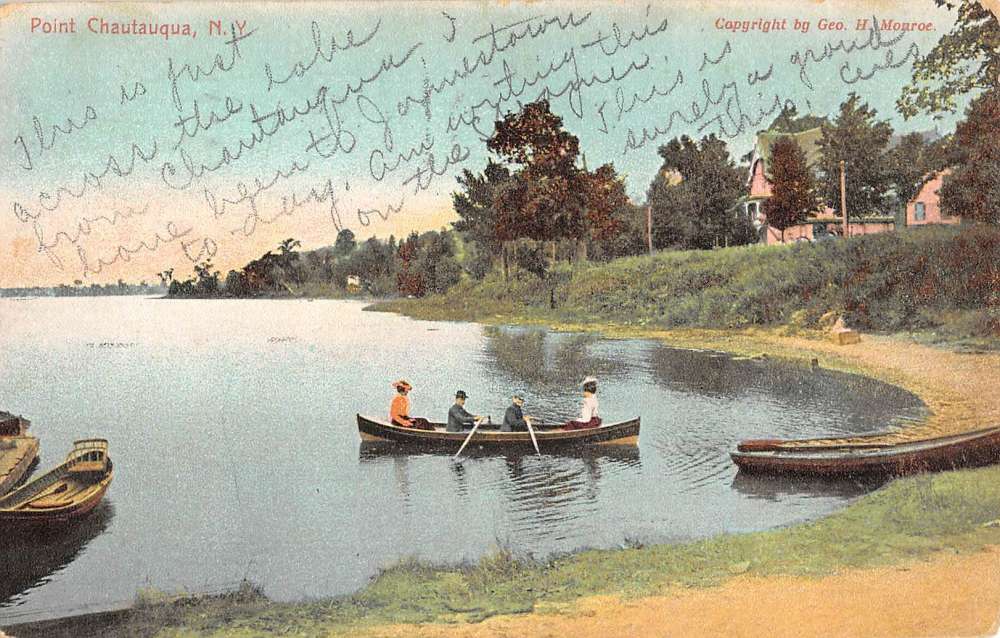 Point Chautauqua, N.Y.
Copyright by Geo. H. Monroe.
This is just
across the lake
from Chautauqua I
have been to Jamestown
to-day. Am writing this
on the steamer. This is
surely a grand
this,